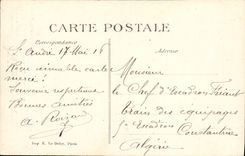 CARTE POSTALE
Correspondance
Adresse
St André 17 Mai 16
Reçu aimable carte
merci !
Souvenir respectueux
Bonnes amitiés
Monsieur
le Chef d'Escadron
train des équipages
5e Escadron
Constantine
Algérie
Imp. E. Le Deley, Paris